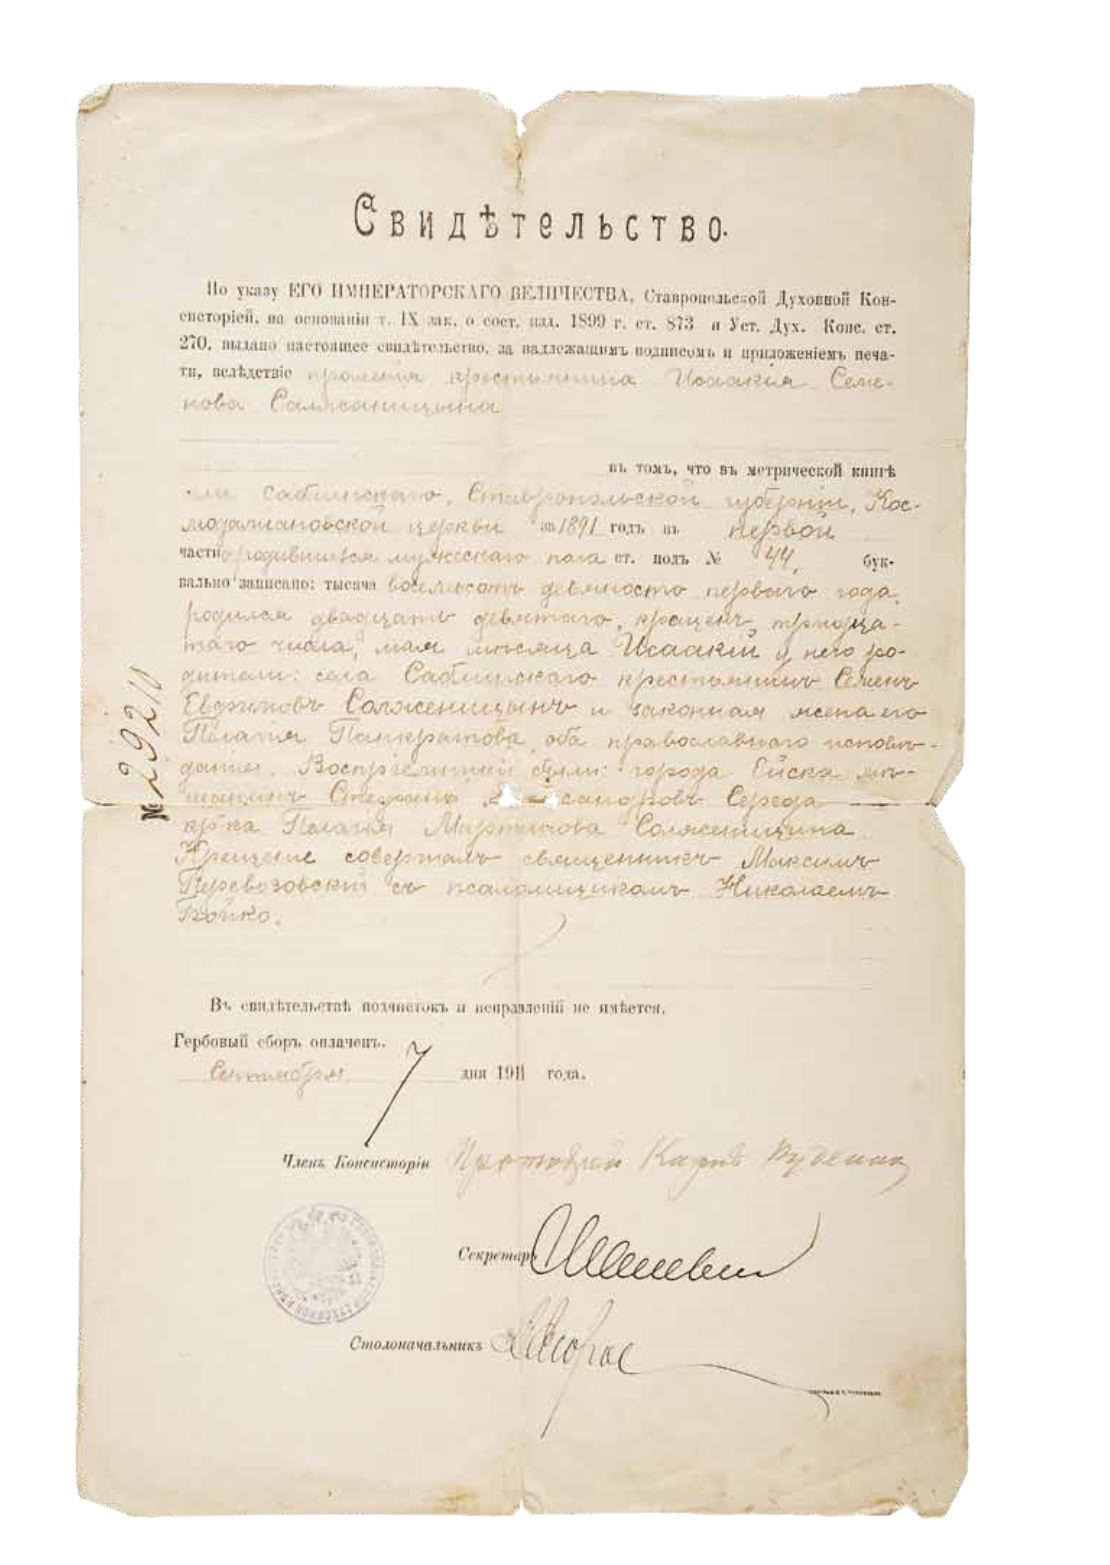 Свидѣтельство.
По указу ЕГО ИМПЕРАТОРСКАГО ВЕЛИЧЕСТВА, Ставропольской Духовной Кон-
систоріей, на основаніи т. IX зак. о сост. изд. 1899 г. ст. 873 и Уст. Дух. Конс. ст.
270, выдано настоящее свидѣтельство, за надлежащимъ подписомъ и приложеніемъ печа-
ти, вслѣдствіе прошенія крестьянина Исаакія Семе-
нова Солженицына
въ томъ, что въ метрической книгѣ
села Саблинскаго, Ставропольской губерніи, Кос-
модаміановской церкви за 1891 годъ въ первой
части о родившихся мужескаго пола ст. подъ № 44, бук-
вально записано: тысяча восемьсотъ девяносто перваго года,
родился двадцать девятаго, крещенъ тридца-
таго числа, мая мѣсяца Исаакій у него ро-
дители: села Саблинскаго крестьянинъ Семенъ
Евфимовъ Солженицынъ и законная жена его
Пелагія Панкратова, оба православнаго исповѣ-
данія. Воспріемники были: города Ейска мѣ-
щанинъ Стефанъ Середа
кр-ка Пелагія Мартинова Солженицина.
Крещеніе совершалъ священникъ Максимъ
Перевозовскій съ псаломщикомъ Николаемъ
Бойко.
№ 29210
Въ свидѣтельствѣ подчистокъ и исправленій не имѣется.
Гербовый сборъ оплаченъ.
Сентября 7 дня 1911 года.
Членъ Консисторіи Протоіерей
Секретарь
Столоначальникъ